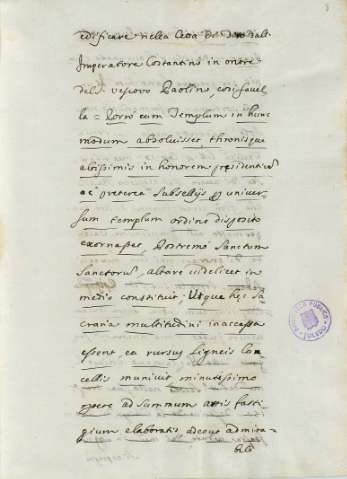 edificare nella
Imperatore Costantino in onore
del Vescovo Paolino, così favel
la = Porro cum Templum in hunc
modum absoluisset, thronisque
altissimis in honorem presidentium
ac preterea subsellijs univer
sum templum ordine disposito
exornasset, Postremo Sanctum
Sanctorum, altare videlicet in
medio constituit; Utque hec sa
craria multitudini inaccessa
essent, ea rursus ligneis can
cellis munivit, minutissimo
opere ad summum artis fasti
gium elaboratis adeout admira=
bile